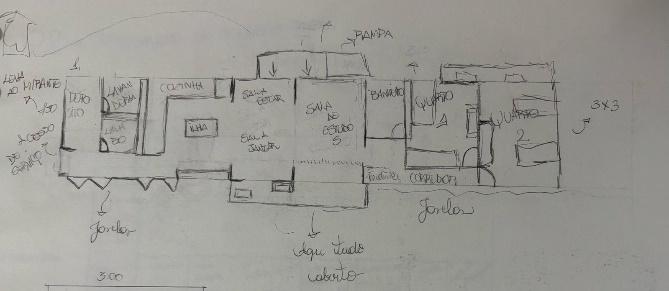 RAMPA
LEVA
AO MIRANTE
DEPO
SITO
LAVAN
DERIA
LAVA
BO
COZINHA
ILHA
SALA
ESTAR
SALA
JANTAR
SALA
DE
ESTUDO
S
BANHEIRO
QUARTO
1
QUARTO
2
3x3
ACESSO
DE
CORREDOR
Janelas
Janelas
Aqui tudo
aberto
3.00